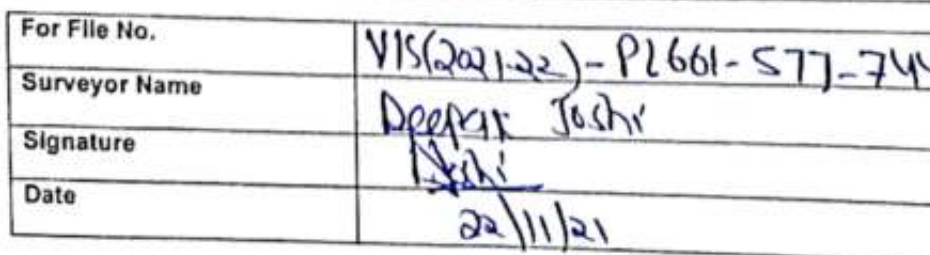 For File No. VIS(2021-22)-PL661-577-744
Surveyor Name Deepak Joshi
Signature Joshi
Date 22/11/21